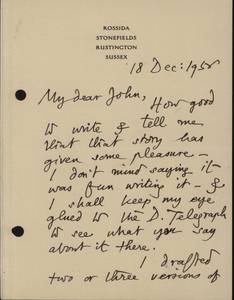 ROSSIDA
STONEFIELDS
RUSTINGTON
SUSSEX
18 Dec: 1958
My dear John,
How good
to write & tell me
that that story has
given some pleasure –
I don't mind saying it
was fun writing it – &
I shall keep my eye
glued to the D. Telegraph
to see what you say
about it there.
I drafted
two or three versions of